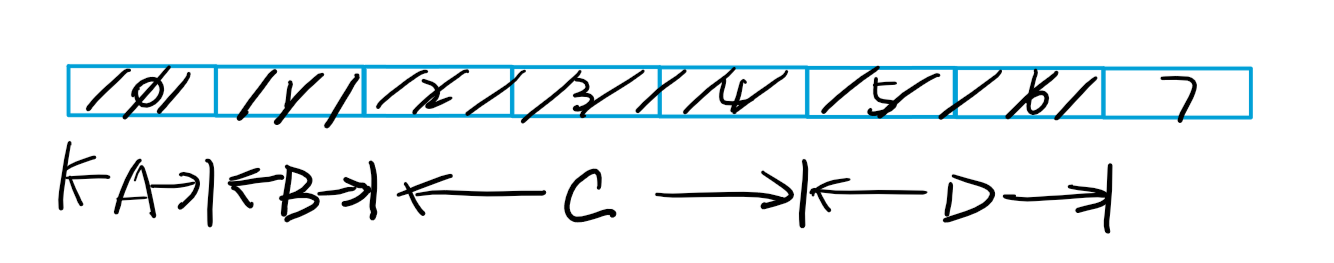 0 1 2 3 4 5 6 7
A B C D